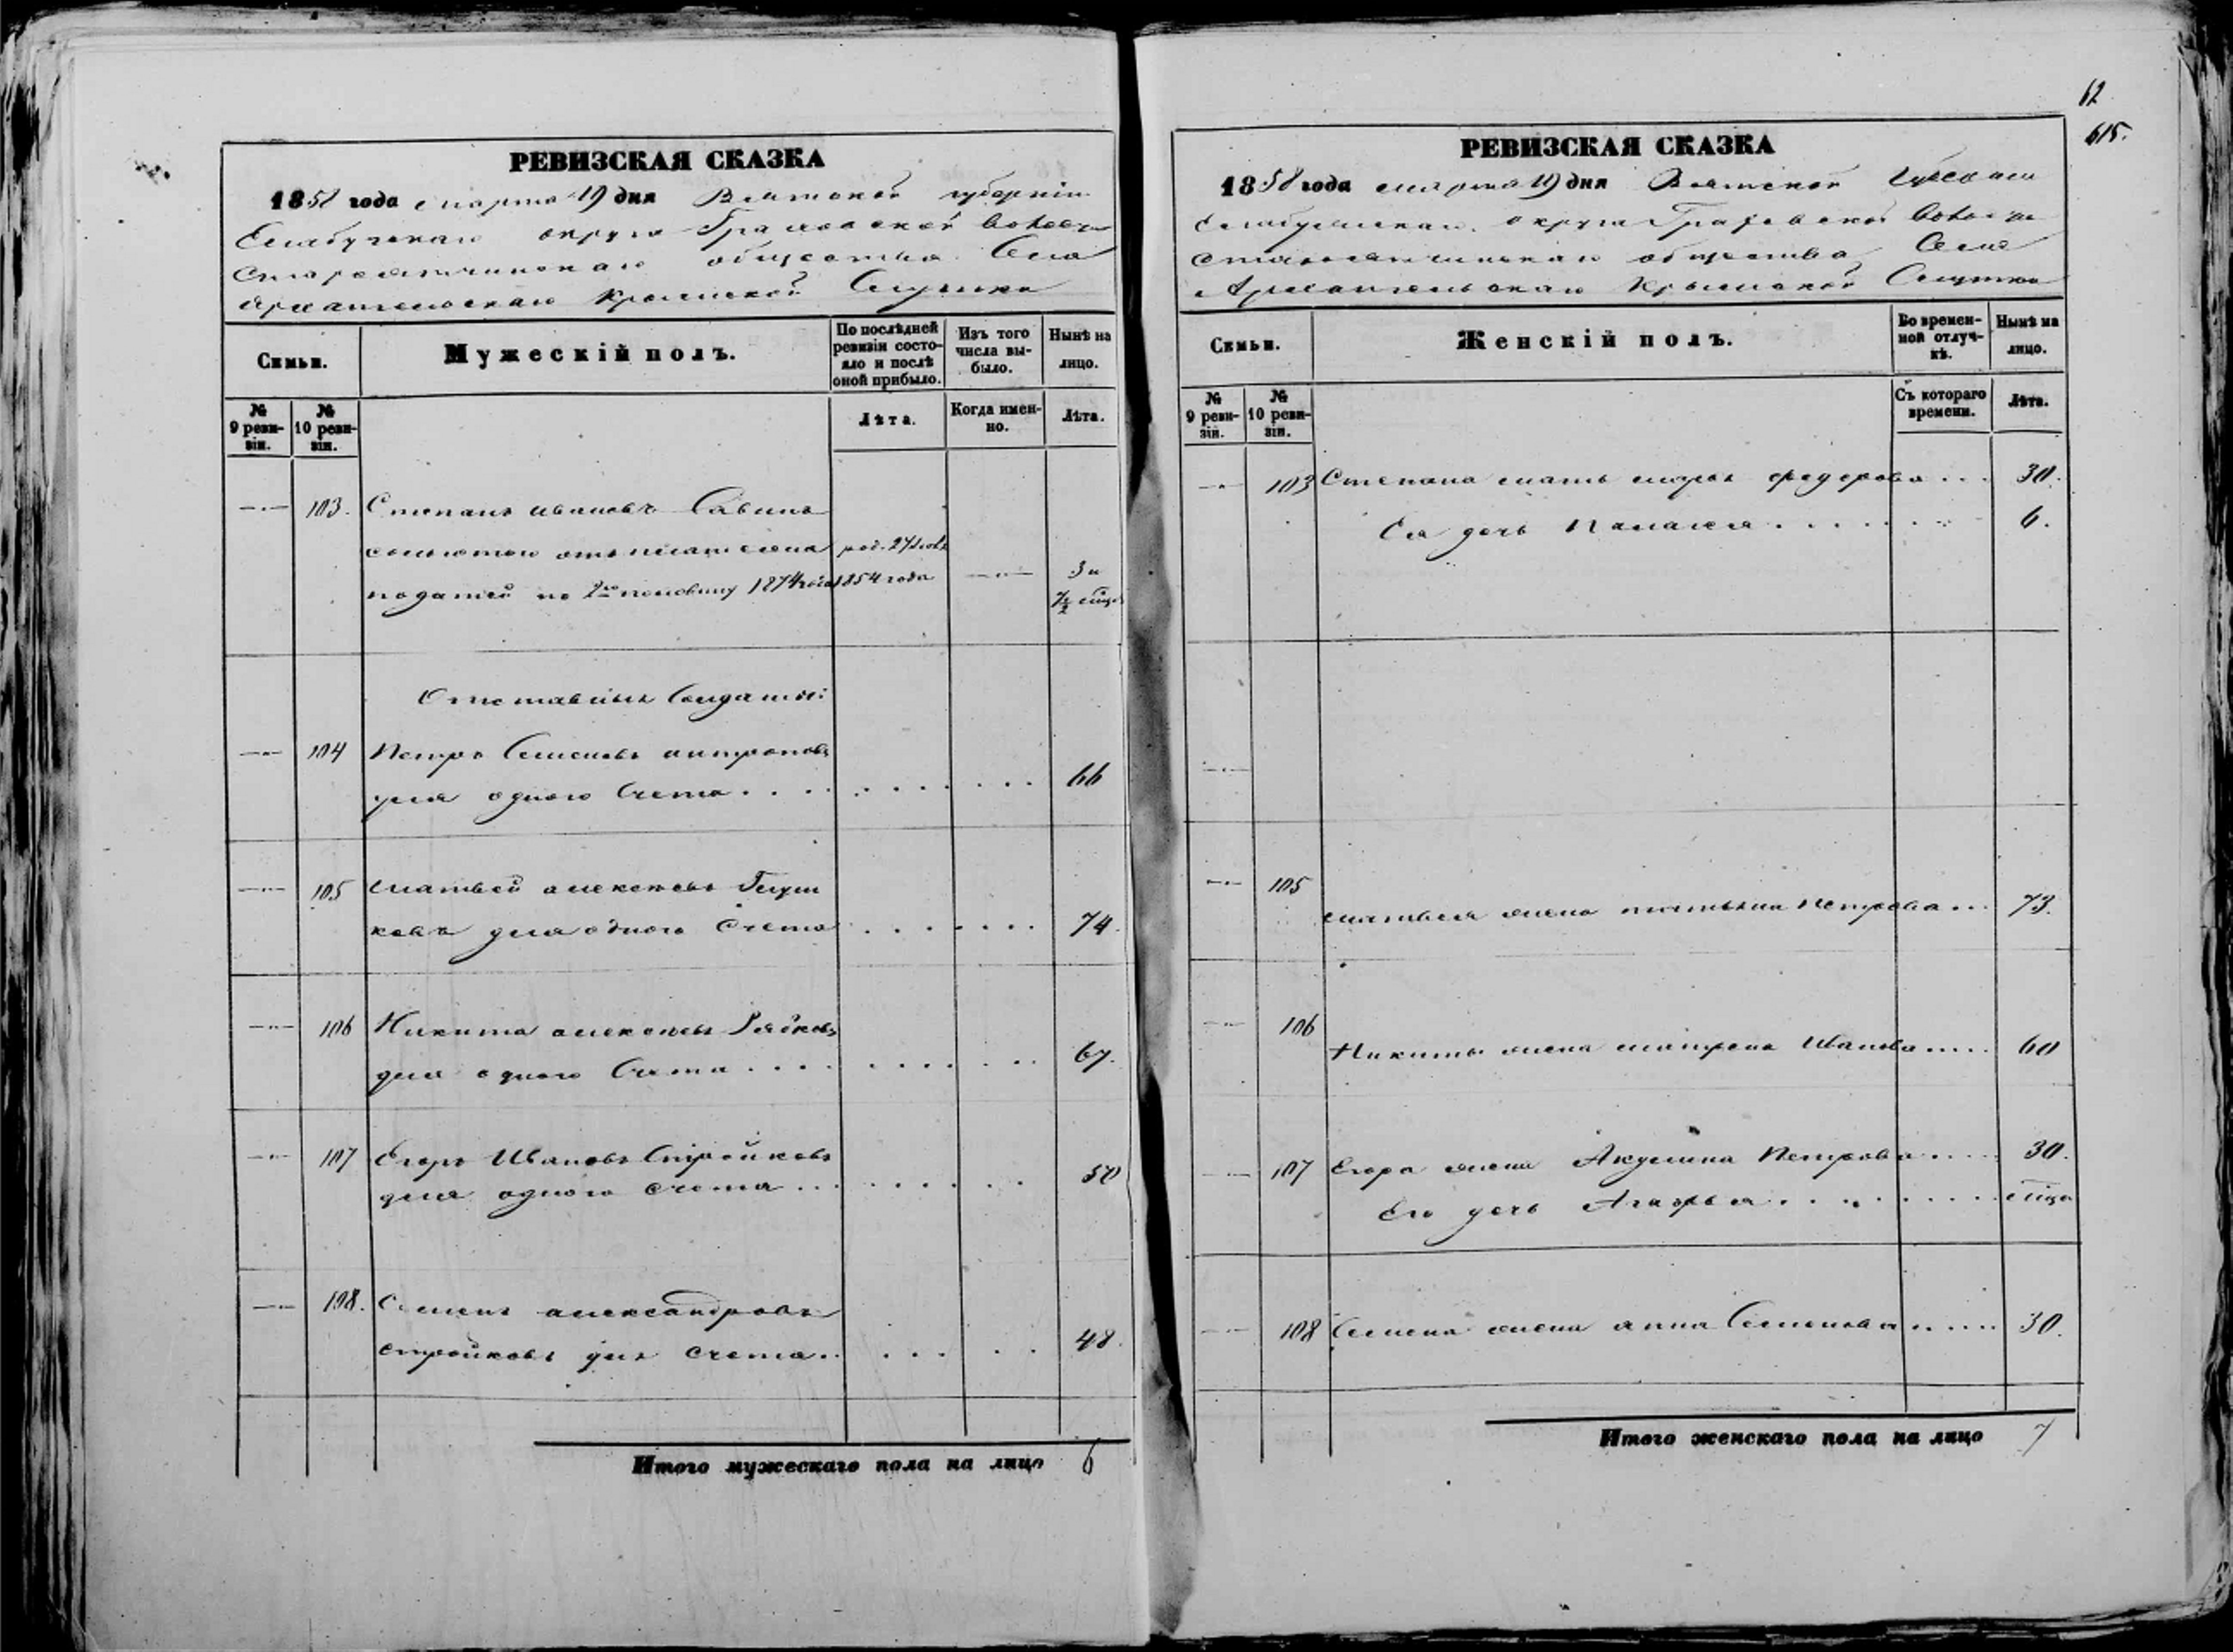 РЕВИЗСКАЯ СКАЗКА
1858 года марта 19 дня Вятской губерніи
Елабужскаго округа Граховской волости
общества Села
Архангельскаго Крымской Слутки
Семьи.
Мужескій полъ.
По послѣдней ревизіи состояло и послѣ оной прибыло.
Изъ того числа выбыло.
Нынѣ на лицо.
№ 9 ревизіи.
№ 10 ревизіи.
Лѣта.
Когда именно.
Лѣта.
103. Степанъ Ивановъ Савинъ
съ льготою отъ платежа
податей по 2ю половину 1874 года 1854 года 3 и
7½ мѣця
Отставные Солдаты:
104 Петръ Семеновъ Антроповъ
для одного Счета . . . . 66
105 Матвей Алексеевъ Глуш
ковъ для одного Счета . . . . 74.
106 Никита Алексеевъ
для одного Счета . . . . 67.
107 Егоръ Ивановъ Стройковъ
для одного счета . . . . 50
108. Семенъ Александровъ
Стройковъ для Счета . . . . 48.
Итого мужескаго пола на лицо 6
62
615.
РЕВИЗСКАЯ СКАЗКА
1858 года марта 19 дня Вятской Губерніи
Елабужскаго округа Граховской волости
общества Села
Архангельскаго Крымской Слутки
Семьи.
Женскій полъ.
Во временной отлучкѣ.
Нынѣ на лицо.
№ 9 ревизіи.
№ 10 ревизіи.
Съ котораго времени.
Лѣта.
103 Степана мать Федорова . . . 30.
Ея дочь Палагея . . . . 6.
105
Матвея жена Татьяна Петрова . . . 73.
106
Никиты жена Матрена Иванова . . . . 60
107 Егора жена Акулина Петрова . . . . 30.
Его дочь Агафья . . . . мѣця
108 Семена жена Анна Семенова . . . . 30.
Итого женскаго пола на лицо 7